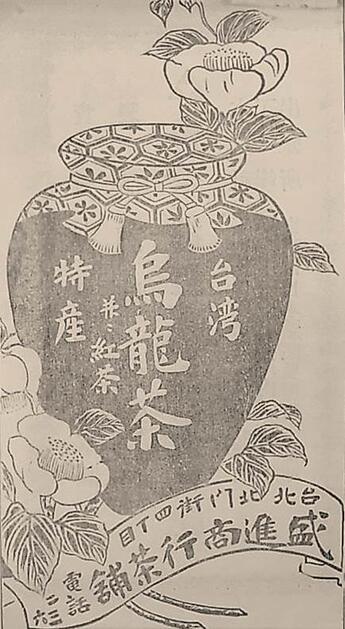 台湾
烏龍茶
並ニ紅茶
特産
台北北門街四丁目
盛進商行茶舖
電話